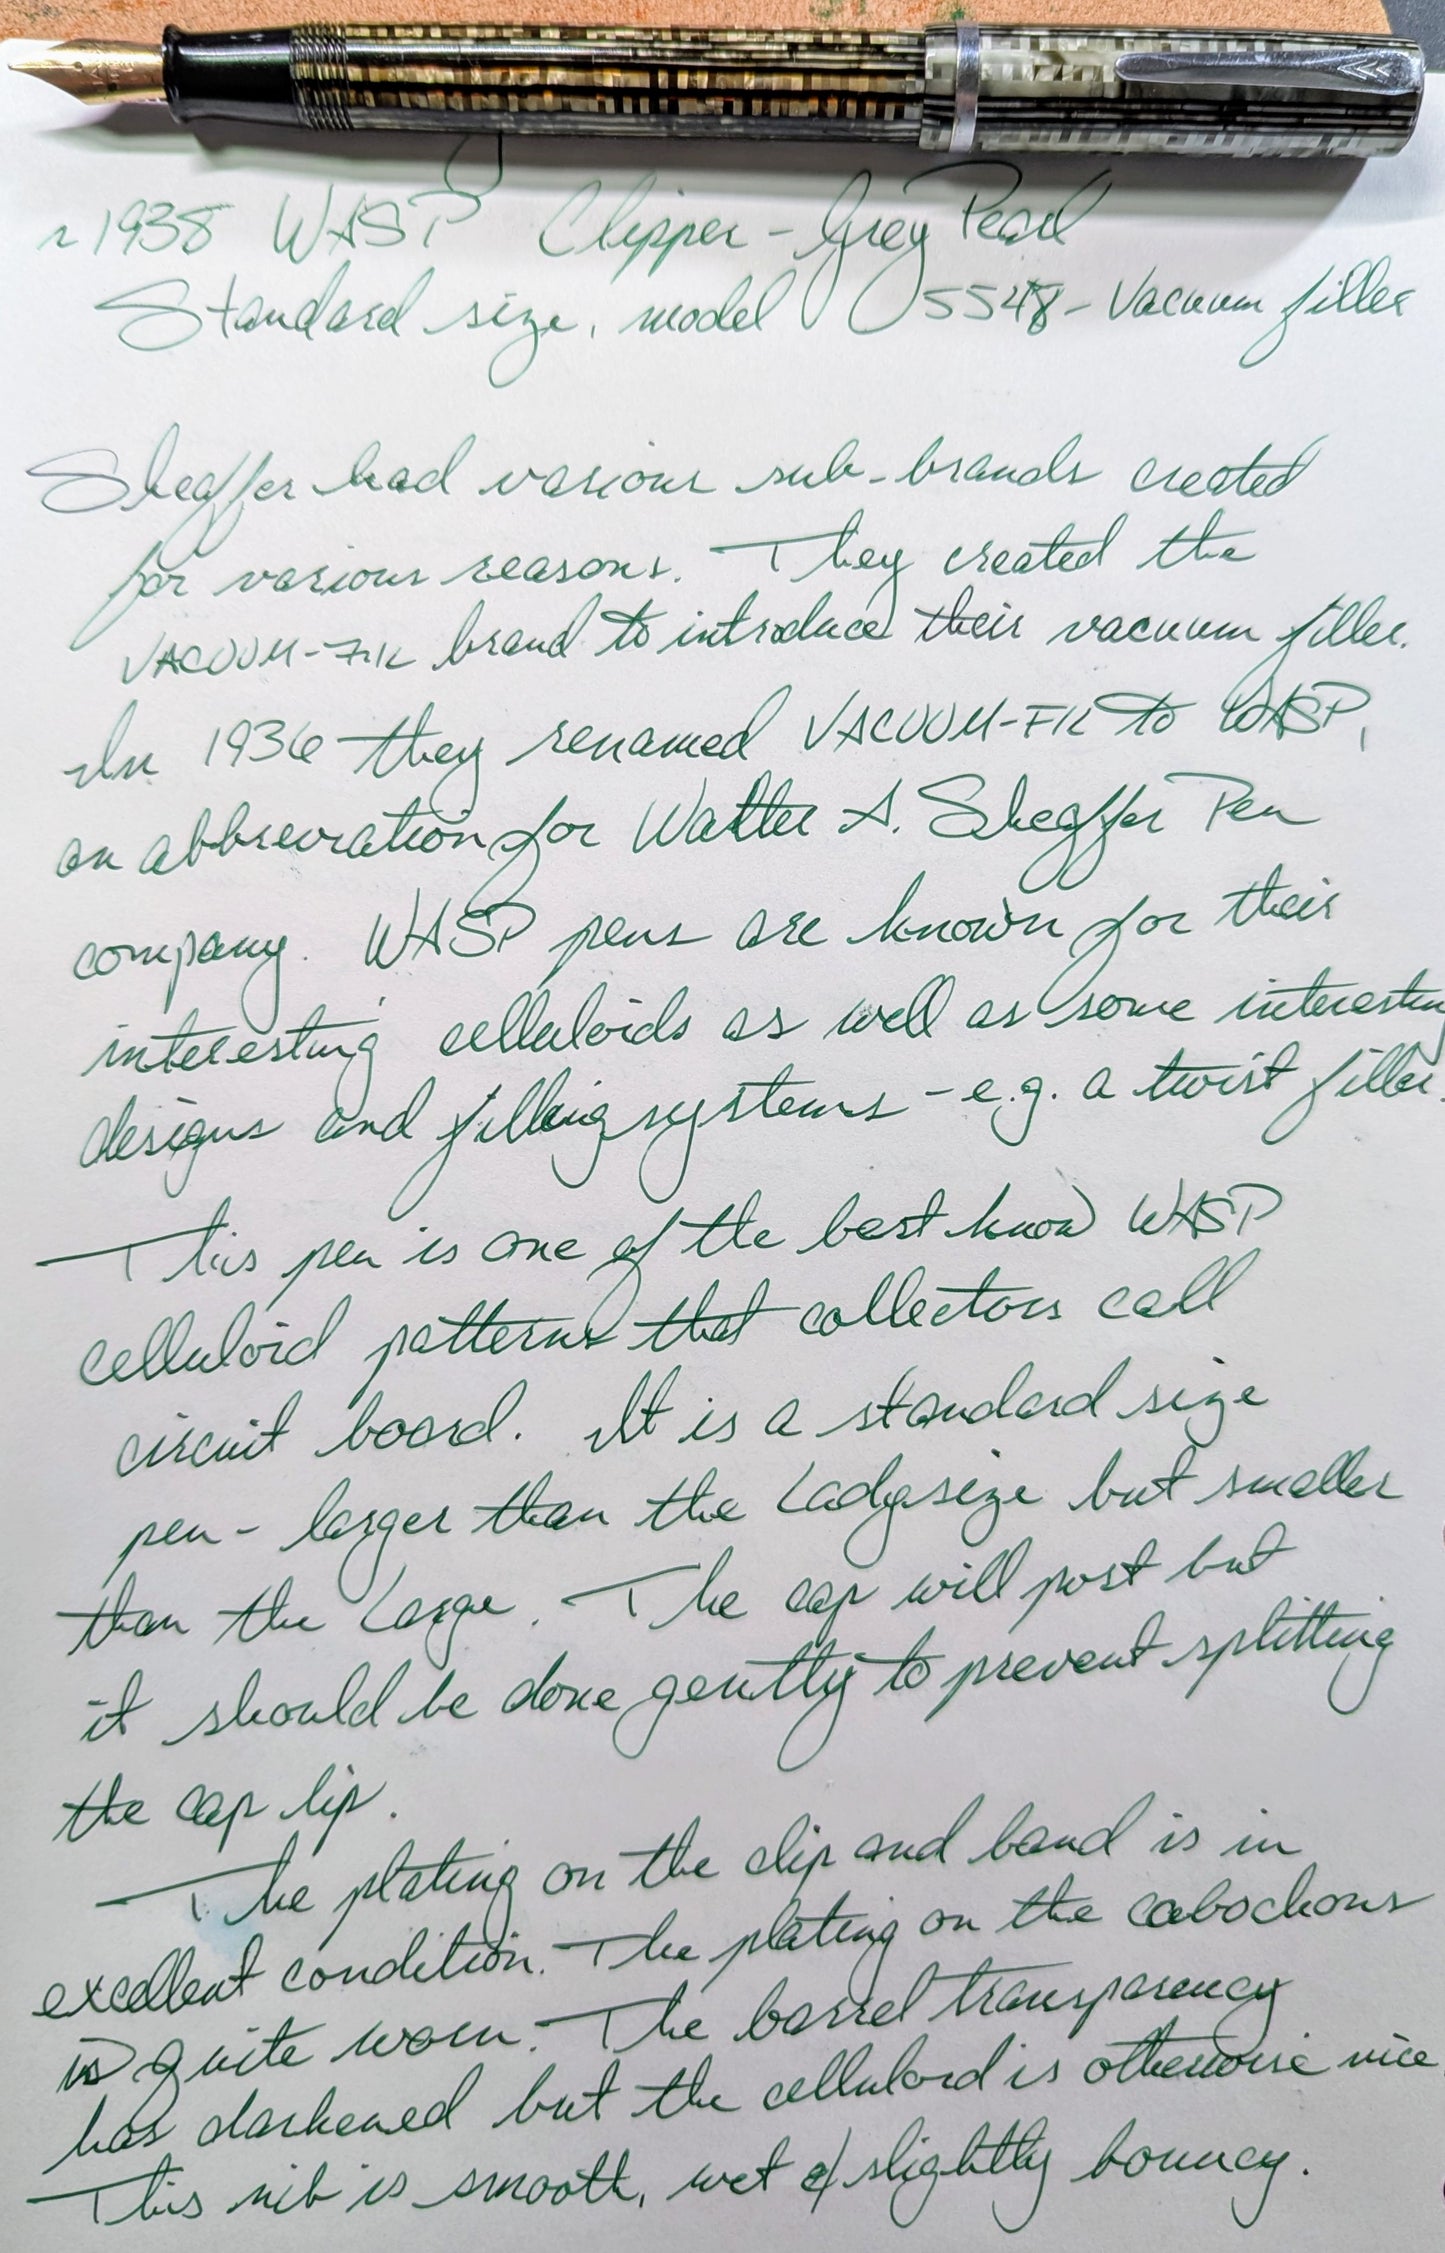 ~1938 WASP Clipper - Grey Pearl
Standard size, model 5548 - Vacuum filler
Sheaffer had various sub-brands created
for various reasons. They created the
VACUUM-FIL brand to introduce their vacuum filler.
In 1936 they renamed VACUUM-FIL to WASP,
an abbreviation for Walter A. Sheaffer Pen
company. WASP pens are known for their
interesting celluloids as well as some interesting
designs and filling systems - e.g. a twist filler.
This pen is one of the best know WASP
celluloid patterns that collectors call
circuit board. It is a standard size
pen - larger than the Lady size but smaller
than the Large. The cap will post but
it should be done gently to prevent splitting
the cap lip.
The plating on the clip and band is in
excellent condition. The plating on the cabochons
is quite worn. The barrel transparency
has darkened but the celluloid is otherwise nice.
This nib is smooth, wet & slightly bouncy.